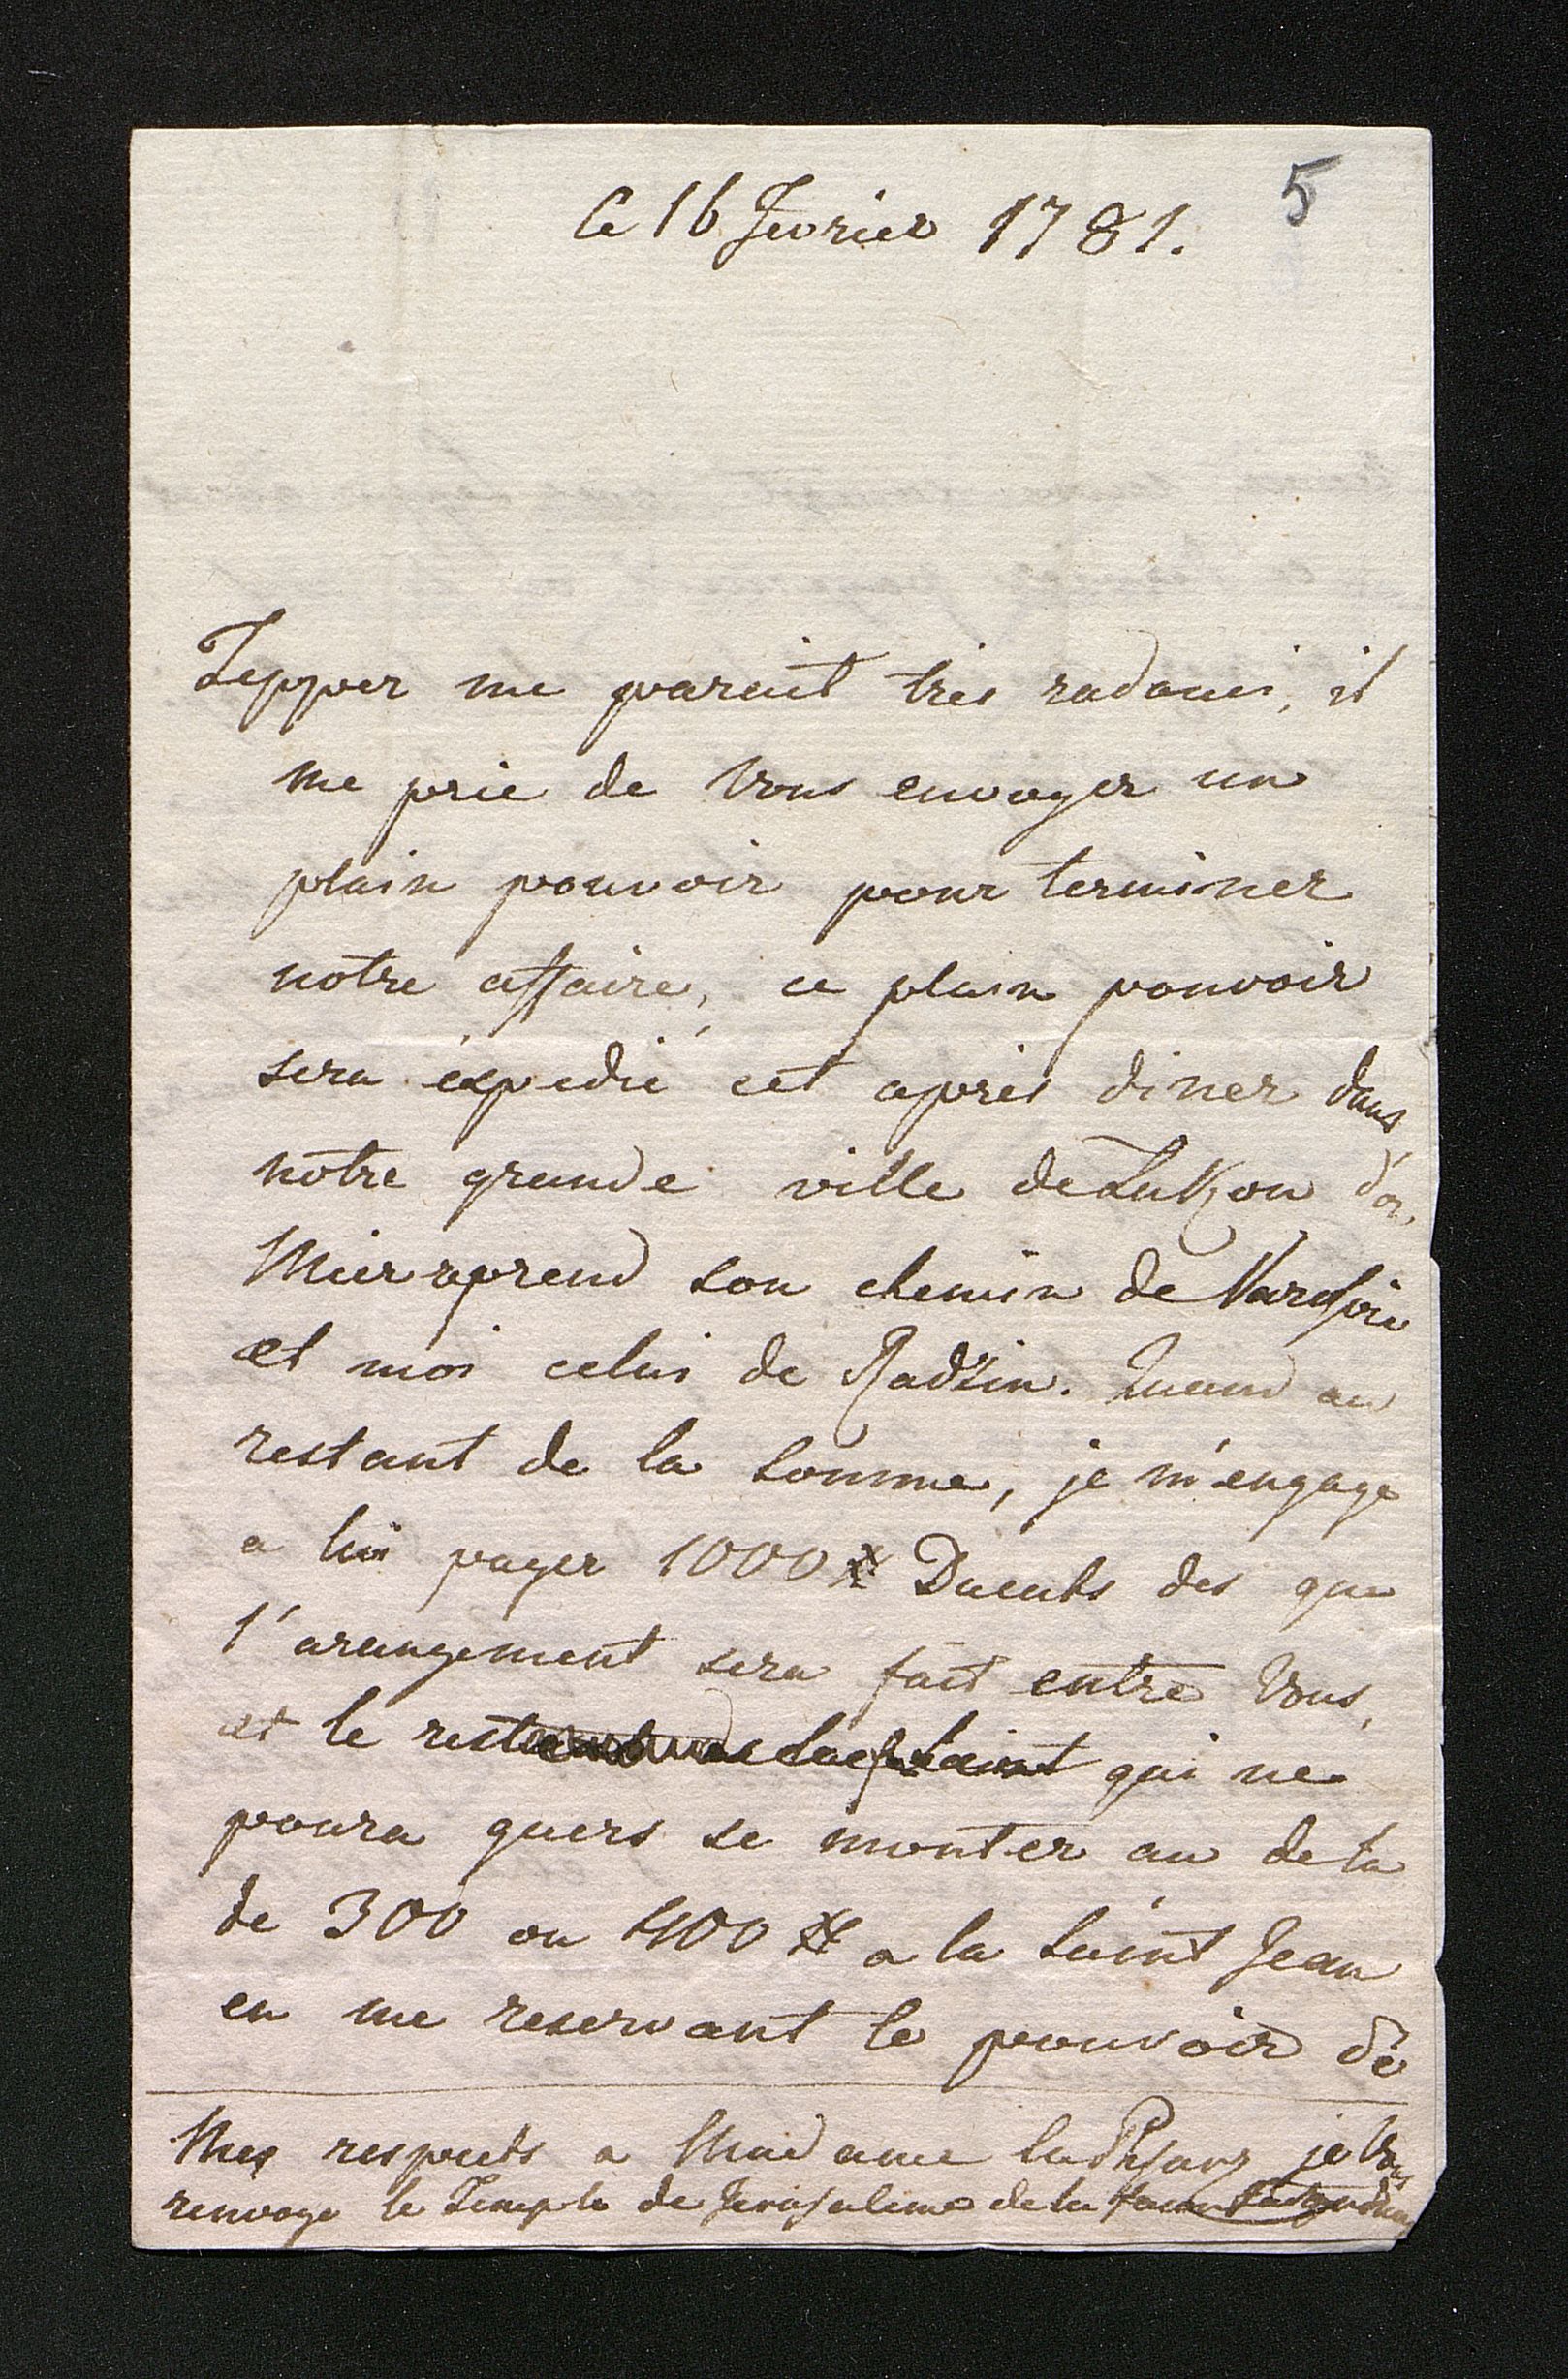 Ce 16 Fevrier 1781.
5
Tepper me parait tres radouci, il
me prie de Vous envoyer un
plain pouvoir pour terminer
notre affaire, ce plain pouvoir
sera éxpedié cet aprés diner dans
notre grande ville de d'où
Mier reprend son chemin de
et moi celui de Radzin. Quand au
restant de la somme, je m'engage
a lui payer 1000 # Ducats des que
l'arangement sera fait entre Vous,
et le reste qui ne
poura guers se monter au dela
de 300 ou 400 # a la Saint Jean
en me reservant le pouvoir de
Mes respects a Madame la je Vous
renvoye le Temple de Jerusaleme de la